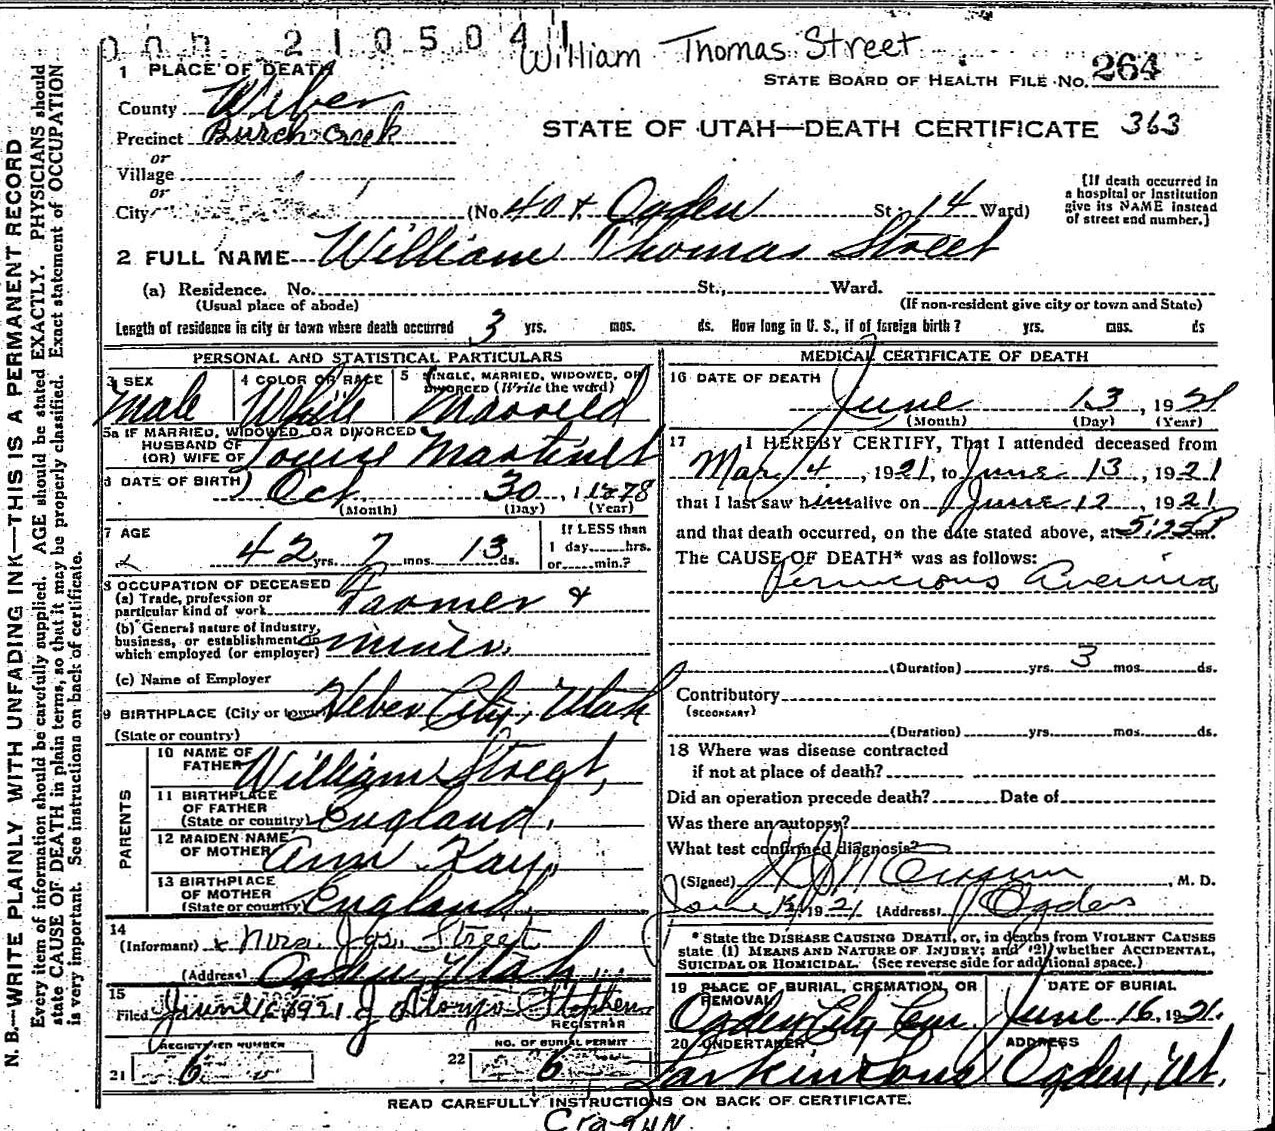 000 2105041
William Thomas Street
STATE BOARD OF HEALTH FILE NO. 264
1 PLACE OF DEATH
County Weber
Precinct Burch Creek
or
Village
or
City
STATE OF UTAH—DEATH CERTIFICATE 363
(No. 40 & Ogden St; 14 Ward)
[If death occurred in
a hospital or institution
give its NAME instead
of street and number.]
2 FULL NAME William Thomas Street
(a) Residence. No. St., Ward.
(Usual place of abode) (If non-resident give city or town and State)
Length of residence in city or town where death occurred 3 yrs. mos. ds. How long in U. S., if of foreign birth? yrs. mos. ds
PERSONAL AND STATISTICAL PARTICULARS
3 SEX
Male
4 COLOR OR RACE
White
5 SINGLE, MARRIED, WIDOWED, OR
DIVORCED (Write the word)
Married
5a IF MARRIED, WIDOWED, OR DIVORCED
HUSBAND OF
(OR) WIFE OF Louise
6 DATE OF BIRTH Oct 30, 1878
(Month) (Day) (Year)
7 AGE
42 yrs. 7 mos. 13 ds.
If LESS than
1 day hrs.
or min.?
8 OCCUPATION OF DECEASED
(a) Trade, profession or
particular kind of work Farmer &
(b) General nature of industry,
business, or establishment in
which employed (or employer) miner.
(c) Name of Employer
9 BIRTHPLACE (City or town) Heber City, Utah
(State or country)
PARENTS
10 NAME OF
FATHER William Street,
11 BIRTHPLACE
OF FATHER
(State or country) England.
12 MAIDEN NAME
OF MOTHER Ann Kay,
13 BIRTHPLACE
OF MOTHER
(State or country) England
14
(Informant) Mrs. Jas. Street
(Address) Ogden Utah
15
Filed June 1921 J Alonzo Stephens
REGISTRAR
REGISTERED NUMBER
21 6
NO. OF BURIAL PERMIT
22 6
MEDICAL CERTIFICATE OF DEATH
16 DATE OF DEATH
June 13, 1921
(Month) (Day) (Year)
17 I HEREBY CERTIFY, That I attended deceased from
Mar 4, 1921, to June 13, 1921
that I last saw him alive on June 12, 1921
and that death occurred, on the date stated above, at 5:25 P m.
The CAUSE OF DEATH* was as follows:
Pernicious Anemia
(Duration) yrs. 3 mos. ds.
Contributory
(SECONDARY)
(Duration) yrs. mos. ds.
18 Where was disease contracted
if not at place of death?
Did an operation precede death? Date of
Was there an autopsy?
What test confirmed diagnosis?
(Signed) , M. D.
June 1921 (Address) Ogden
* State the DISEASE CAUSING DEATH, or, in deaths from VIOLENT CAUSES
state (1) MEANS AND NATURE OF INJURY; and (2) whether ACCIDENTAL,
SUICIDAL OR HOMICIDAL. (See reverse side for additional space.)
19 PLACE OF BURIAL, CREMATION, OR
REMOVAL
Ogden City Cem.
DATE OF BURIAL
June 16, 1921.
20 UNDERTAKER
Larkin & Sons
ADDRESS
Ogden, Ut.
READ CAREFULLY INSTRUCTIONS ON BACK OF CERTIFICATE.
Cragun
N. B.—WRITE PLAINLY WITH UNFADING INK—THIS IS A PERMANENT RECORD
Every item of information should be carefully supplied. AGE should be stated EXACTLY. PHYSICIANS should
state CAUSE OF DEATH in plain terms, so that it may be properly classified. Exact statement of OCCUPATION
is very important. See instructions on back of certificate.